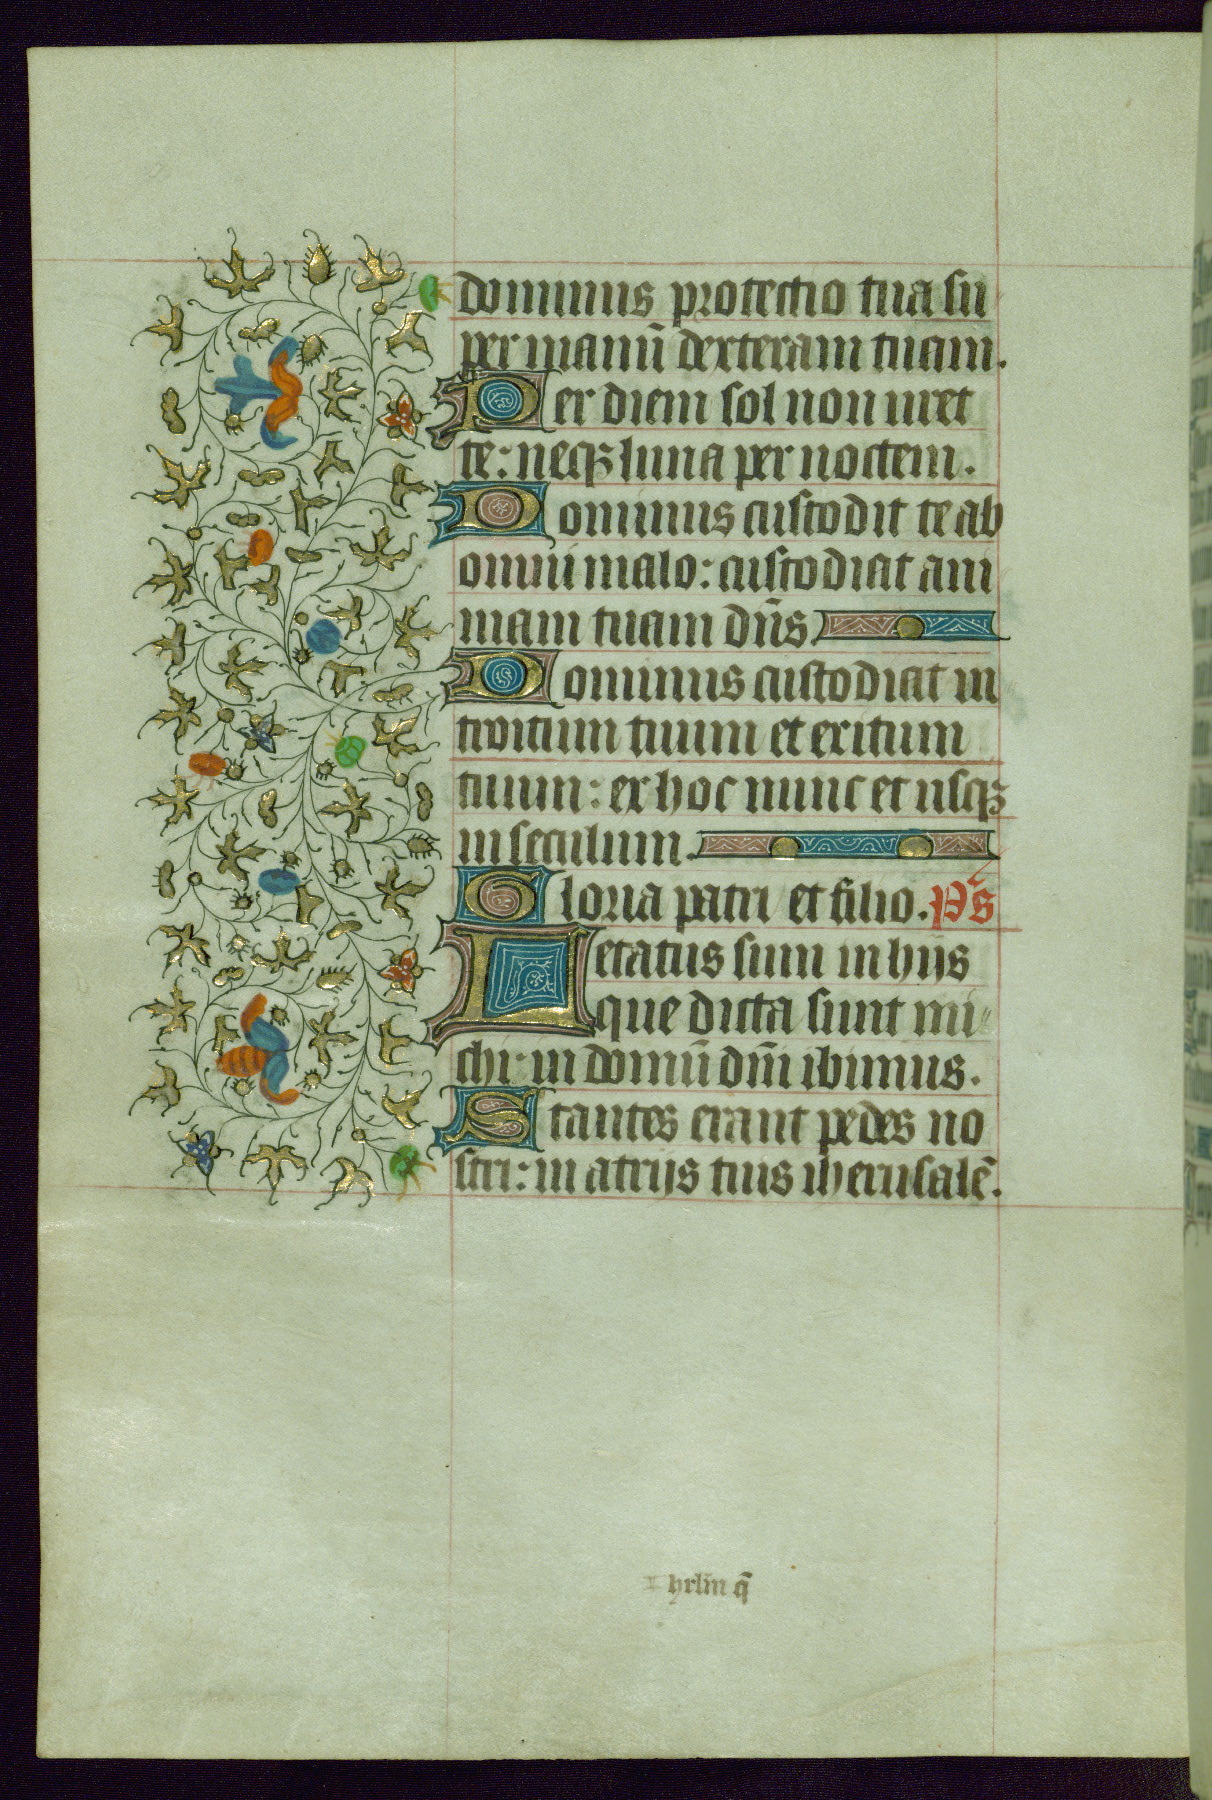 dominus protectio tua su
per manū dexteram tuam.
Per diem sol non uret
te: neqꝫ luna per noctem.
Dominus custodit te ab
omni malo: custodiat ani
mam tuam dn̄s
Dominus custodiat in
troitum tuum et exitum
tuum: ex hoc nunc et usqꝫ
in seculum.
Gloria patri et filio. Ps̄
Letatus sum in hijs
que dicta sunt mi
chi: in domū dn̄i ibimus.
Stantes erant pedes no
stri: in atrijs tuis iherusalē.
Ihrlm̄ q̄